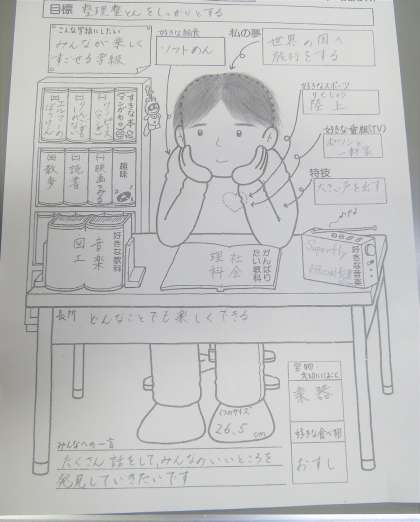 目標 整理整とんをしっかりとする
こんな学級にしたい
みんなが楽しく
すごせる学級
好きな給食
ソフトめん
私の夢
世界の国へ
旅行をする
好きなスポーツ
りくじょう
陸上
好きな番組(TV)
特技
大きい声を出す
すきな本
マンガ
趣味
映画をみる
読書
散歩
好きな教科
音楽
図工
がんばり
たい教科
社会
理科
好きな音楽
Superfly
長所 どんなことでも楽しくできる
くつのサイズ
26.5 cm
宝物
大切にしていること
楽器
好きな食べ物
おすし
みんなへの一言
たくさん話をして、みんなのいいところを
発見していきたいです